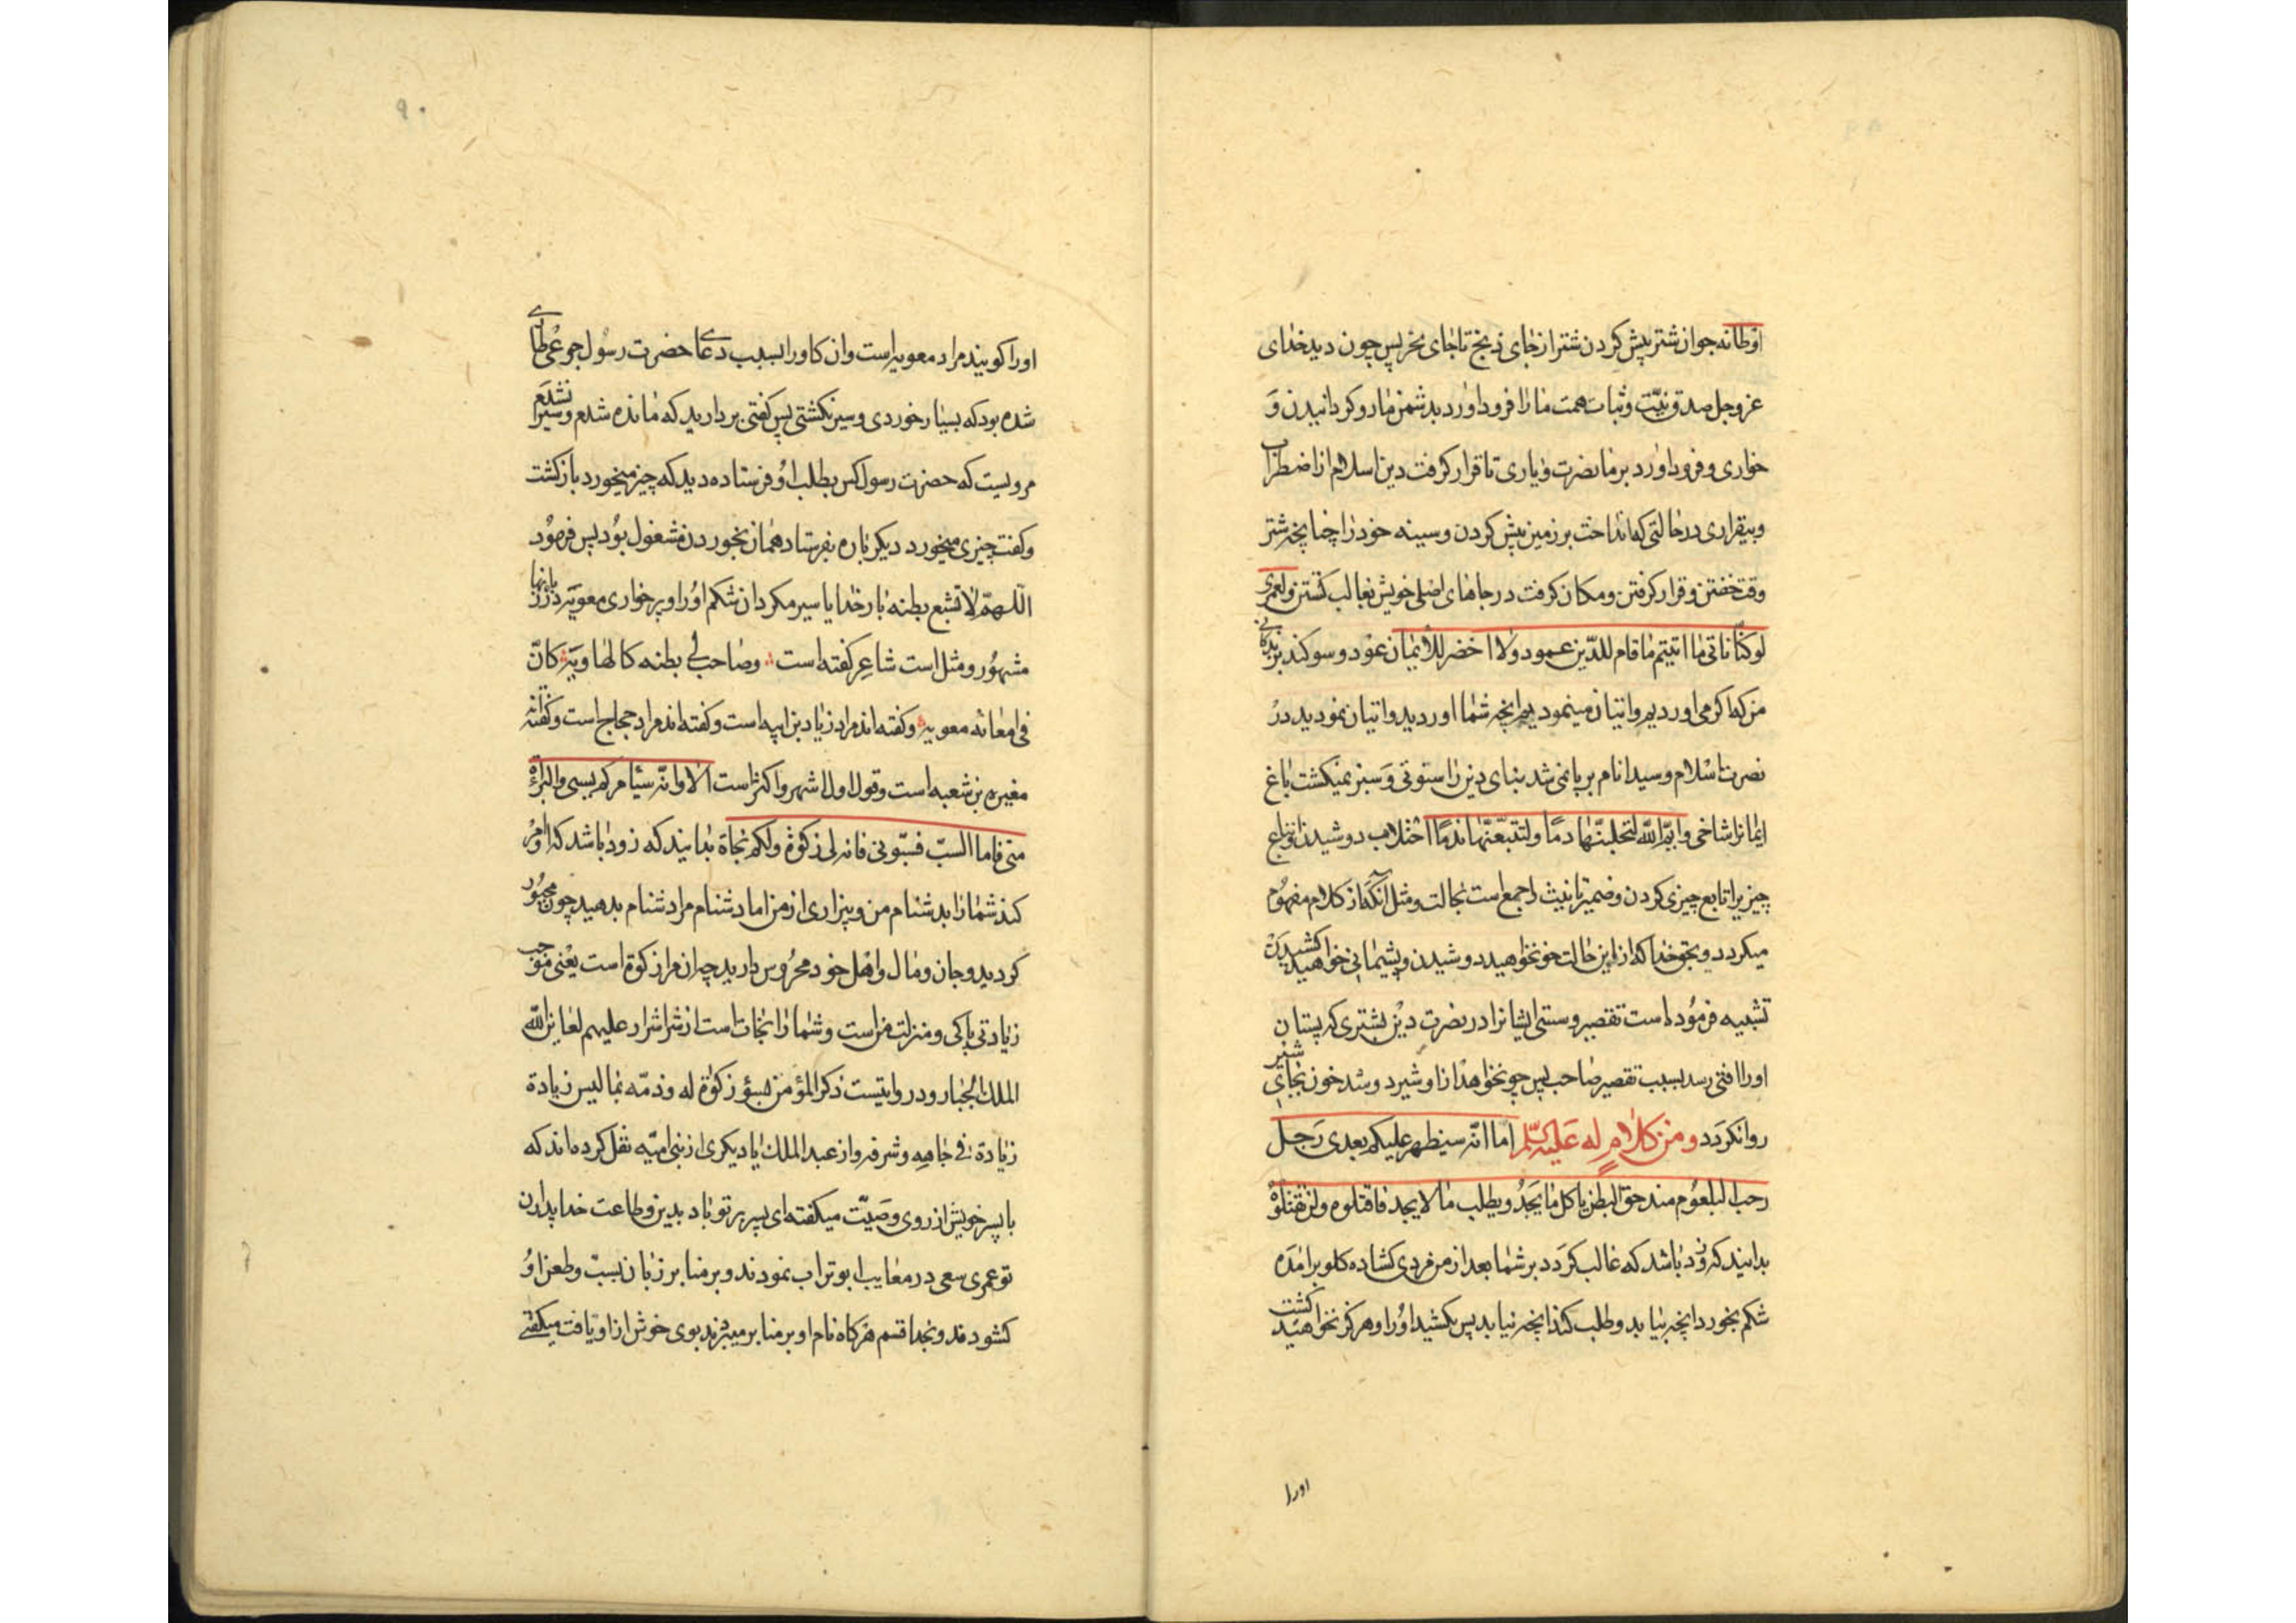 اوطانه جوان شتر پیش کردن شتر از جای ذبح تا جای نحر پس چون دید خدای
عز و جل صدق نیّت و ثبات همت ما را فرود اورد بدشمن ما رو کردانیدن و
خواری و فرود اورد بر ما نصرت و یاری تا قرار کرفت دین اسلام از اضطراب
و بیقراری در حالتی که انداخت بر زمین پیش کردن و سینه خود را چنانچه شتر
وقت خفتن و قرار کرفتن و مکان کرفت در جاهای اصلی خویش بغالب کشتن و لعمری
لو کنّا ناتی ما اتیتم ما قام للدّین عمود و لا اخضر للأیمان عود و سوکند بزندکانی
من که اکر می اوردیم و اتیان مینمودیم انچه شما اوردید و اتیان نمودید در
نصرت اسلام و سید انام بر پا نمی شد بنای دین را ستونی و سبز نمیکشت باغ
ایمانرا شاخی و ایم الله لتحتلبنّها دمًا و لتتبعنّها ندمًا احتلاب دوشیدن اتباع
چیزیرا تابع چیزی کردن و ضمیر تانیث راجع است بحالت و مثل آنکه از کلام مفهوم
میکردد و بحق خدا که از این حالت خون خواهید دوشیدن و پشیمانی خواهید کشیدن
تشبیه فرموده است تقصیر و سستی ایشانرا در نصرت دین بشتری که پستان
او را افتی رسد بسبب تقصیر صاحب پس چون خواهد از او شیر دوشد خون بجای شیر
روان کردد و من کلام له علیه السلم اما انّه سیظهر علیکم بعدی رجل
رحب البلعوم مندحق البطن یاکل ما یجد و یطلب ما لا یجد فاقتلوه و لن تقتلوه
بدانید که زود باشد که غالب کردد بر شما بعد از من مردی کشاده کلو برامده
شکم بخورد انچه بیابد و طلب کند انچه نیابد پس بکشید او را و هرکز نخواهید کشت
او را
۹۰
او را کویند مراد معویه است و ان کاو را بسبب دعای حضرت رسول جوعی طاری
شده بود که بسیار خوردی و سیر نکشتی پس کفتی بردارید که مانده شدم و سیر نشدم
مرویست که حضرت رسول کس بطلب او فرستاده دید که چیز میخورد بازکشت
و کفت چیزی میخورد دیکر باره بفرستاد همان بخوردن مشغول بود پس فرمود
اللّهمّ لا تشبع بطنه بار خدایا سیر مکردان شکم او را و پرخواری معویه در زبانها
مشهور و مثل است شاعر کفته است و صاحب لی بطنه کالهاویه کانّ
فی امعائه معویه و کفته اند مراد زیاد بن ابیه است و کفته اند مراد حجاج است و کفته اند
مغیره بن شعبه است و قول اول اشهر و اکثر است الا و انّه سیامرکم بسبی و البراءة
منی فاما السبّ فسبّونی فانه لی زکوة و لکم نجاة بدانید که زود باشد که امر
کند شما را بدشنام من و بیزاری از من اما دشنام مرا دشنام بدهید چون مجبور
کردید و جان و مال و اهل خود محروس دارید چه ان مرا زکوة است یعنی موجب
زیادتی پاکی و منزلت من است و شما را نجات است از شر اشرار علیهم لعاین الله
الملک الجبار و در روایتیست ذکر المؤمن بسوء زکوة له و ذمّه بما لیس
زیادة فی جاهه و شرفه و از عبد الملک یا دیکری از بنی امیّه نقل کرده اند که
با پسر خویش از روی وصیّت میکفته ای پسر بر تو باد بدین و طاعت خدا پدران
تو عمری سعی در معایب ابو تراب نمودند و بر منابر زبان بسبّ و طعن او
کشودند و بخدا قسم هر کاه نام او بر منابر میبردند بوی خوش از او یافت میکفتی